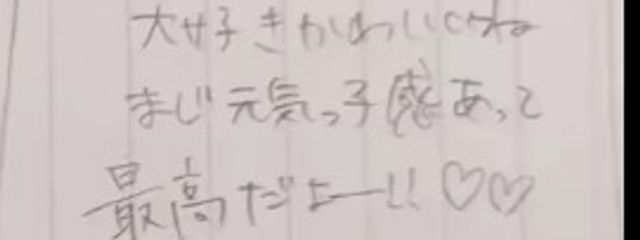 大好きかわいいね
まじ元気っ子感あって
最高だよー!! ♡♡